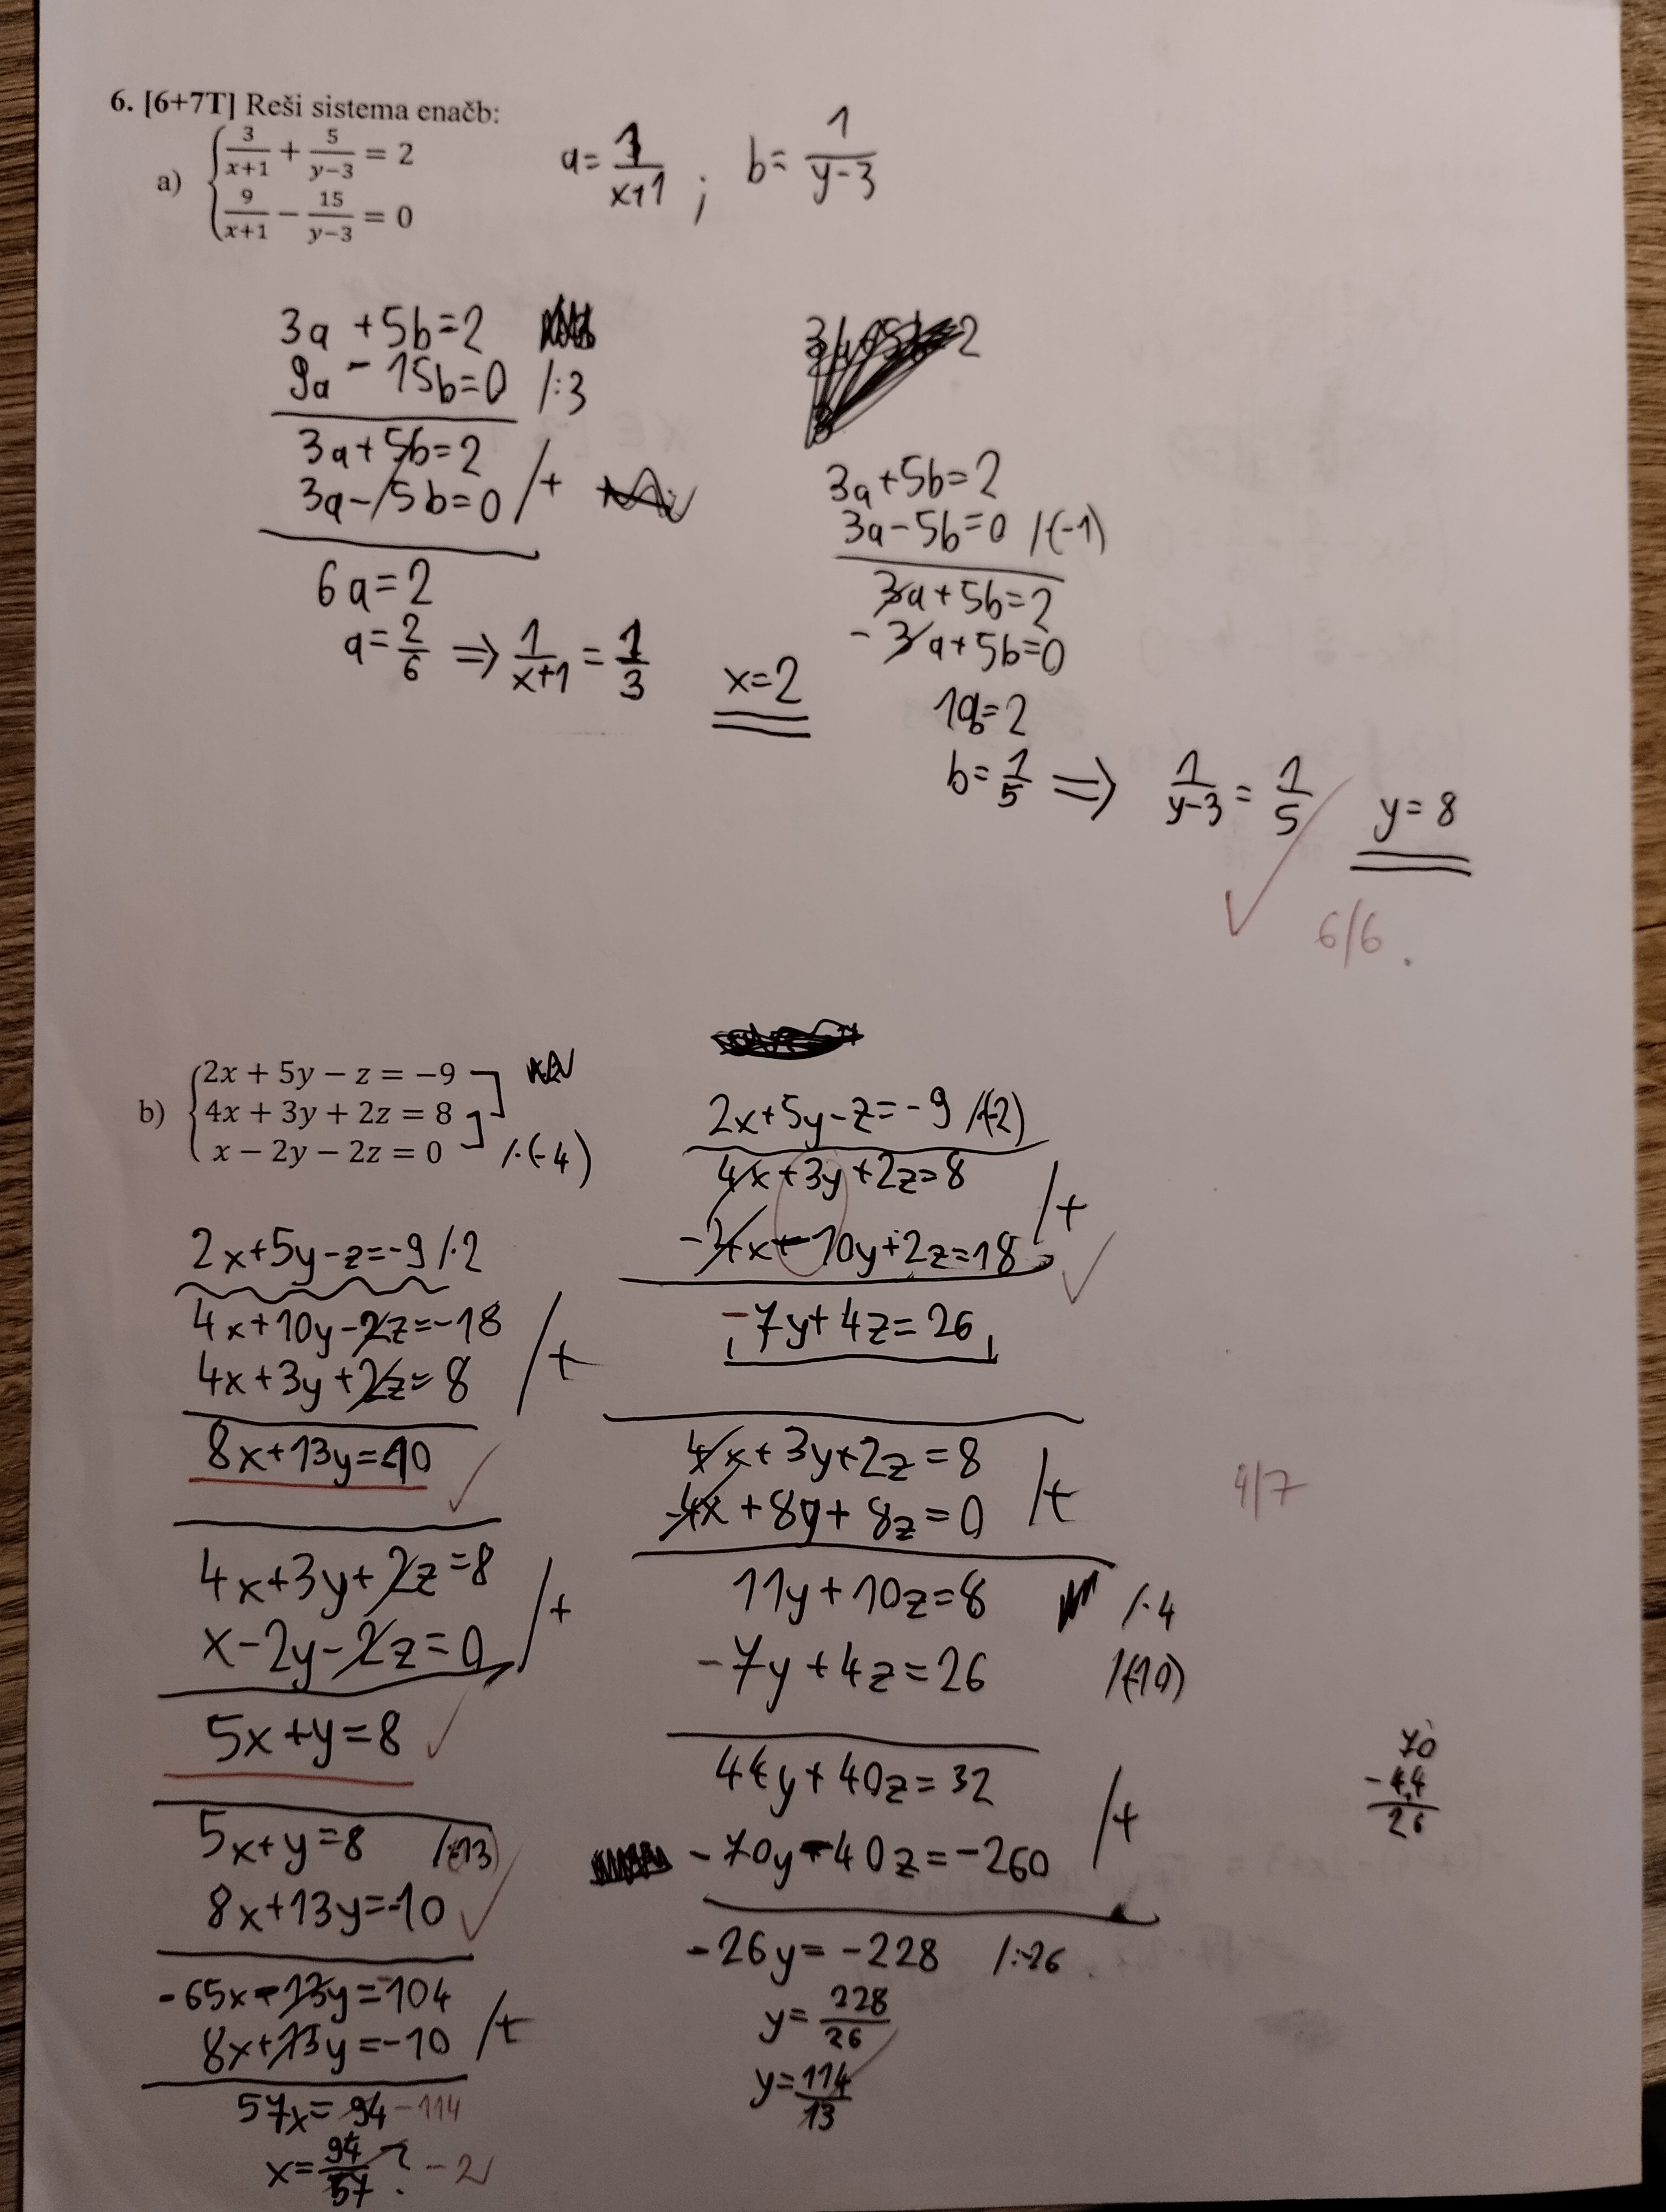 6. [6+7T] Reši sistema enačb:
a) { 3/(x+1) + 5/(y−3) = 2
9/(x+1) − 15/(y−3) = 0
a = 1/(x+1) ; b = 1/(y-3)
3a + 5b = 2
9a - 15b = 0 /:3
3a + 5b = 2
3a - 5b = 0 /+
6a = 2
a = 2/6 ⇒ 1/(x+1) = 1/3
x = 2
3a + 5b = 2
3a - 5b = 0 /(-1)
3a + 5b = 2
- 3a + 5b = 0
10b = 2
b = 1/5 ⇒ 1/(y-3) = 1/5
y = 8
6/6.
b) { 2x + 5y − z = −9
4x + 3y + 2z = 8
x − 2y − 2z = 0 /·(-4)
2x + 5y - z = -9 /·2
4x + 10y - 2z = -18
4x + 3y + 2z = 8 /+
8x + 13y = -10
4x + 3y + 2z = 8
x - 2y - 2z = 0 /+
5x + y = 8
5x + y = 8 /(-13)
8x + 13y = -10
-65x - 13y = -104
8x + 13y = -10 /+
57x = 94 -114
x = 94/57 ? -2
2x + 5y - z = -9 /(-2)
4x + 3y + 2z = 8
-4x - 10y + 2z = 18 /+
-7y + 4z = 26
4x + 3y + 2z = 8
-4x + 8y + 8z = 0 /+
11y + 10z = 8 /·4
-7y + 4z = 26 /(-10)
44y + 40z = 32
-70y - 40z = -260 /+
-26y = -228 /:-26
y = 228/26
y = 114/13
4/7
70
-44
26